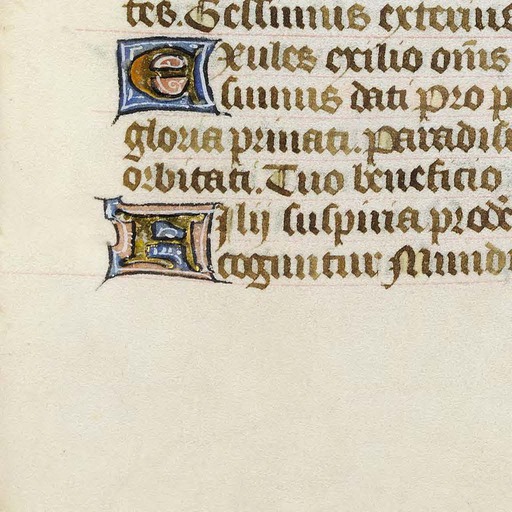 tes. Gessimus exterius
Exules exilio om̄s
sumus dati pro p
gloria priuati. paradisi
orbitati. Tuo beneficio
Filij suspiria prodc̄
coguntur Mund